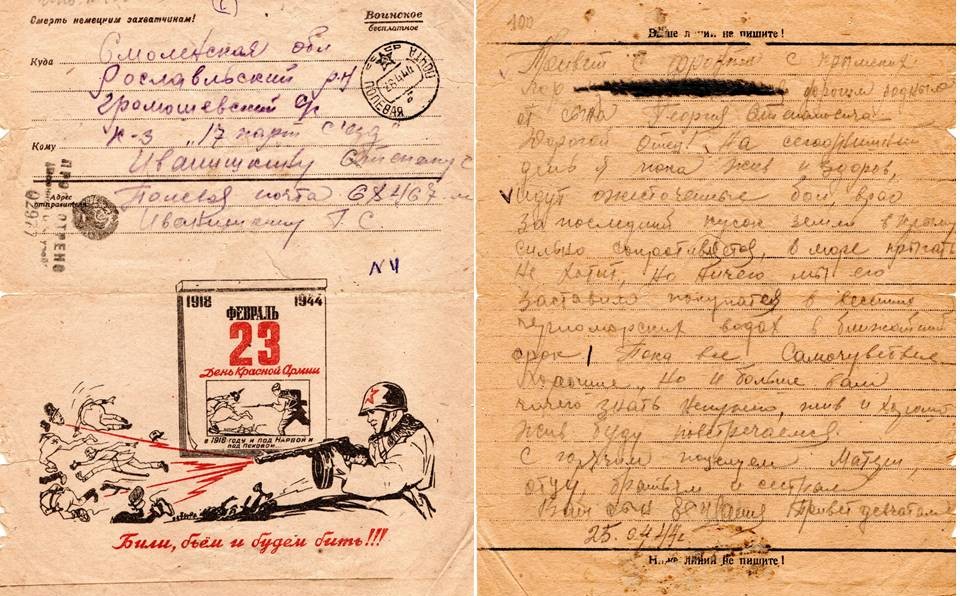 Смерть немецким захватчикам!
Воинское
бесплатное
Куда
Смоленская обл
Рославльский р-н
к-з "17 парт с'езд"
Кому
Иванишкину
СССР
ПОЛЕВАЯ
ПОЧТА
Адрес отправителя
Полевая почта 68467
Иванишкину Г. С.
02977
N 4
1918 1944
ФЕВРАЛЬ
23
День Красной Армии
В 1918 ГОДУ И ПОД НАРВОЙ И
ПОД ПСКОВОМ...
Били, бьём и будем бить!!!
100
Выше линий не пишите!
Привет с фронта с крымских
гор дорогим родным
от сына Георгия
Дорогой отец! На сегодняшний
день я пока жив и здоров,
идут ожесточенные бои, враг
за последний кусок земли в Крыму
сильно сопротивляется, в море прыгать
не хотит, но ничего мы его
заставим покупатся в весенние
черноморских водах в ближайший
срок! Пока все Самочувствие
хорошие. Но и больше вам
ничего знать ненужно, жив и
жив буду повстречаемся
С горячим поцелуем Матери,
отцу, братьям и сестрам
Ваш сын Привет девчатам
25.04.44г.
Ниже линий не пишите!